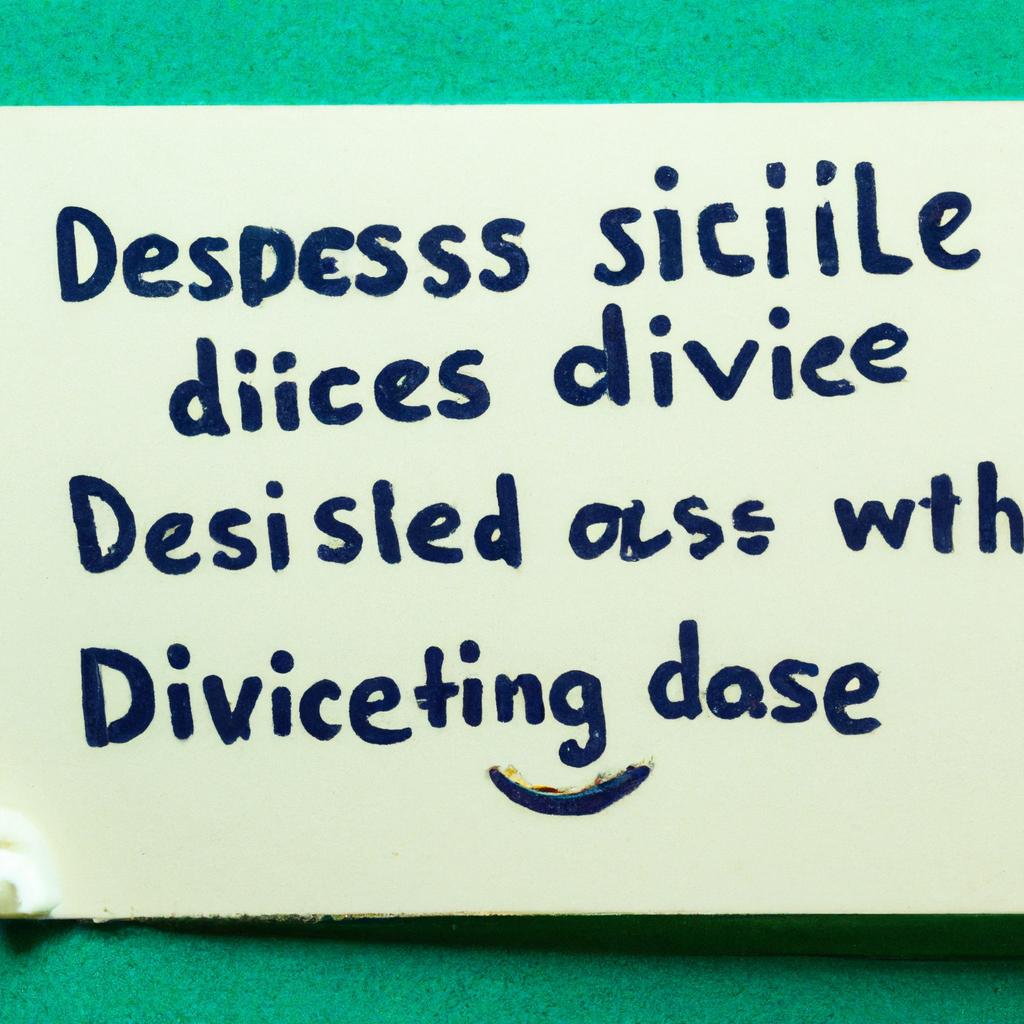 Despesss siciile
diices divice
Desisled ass wth
Diviceting dose